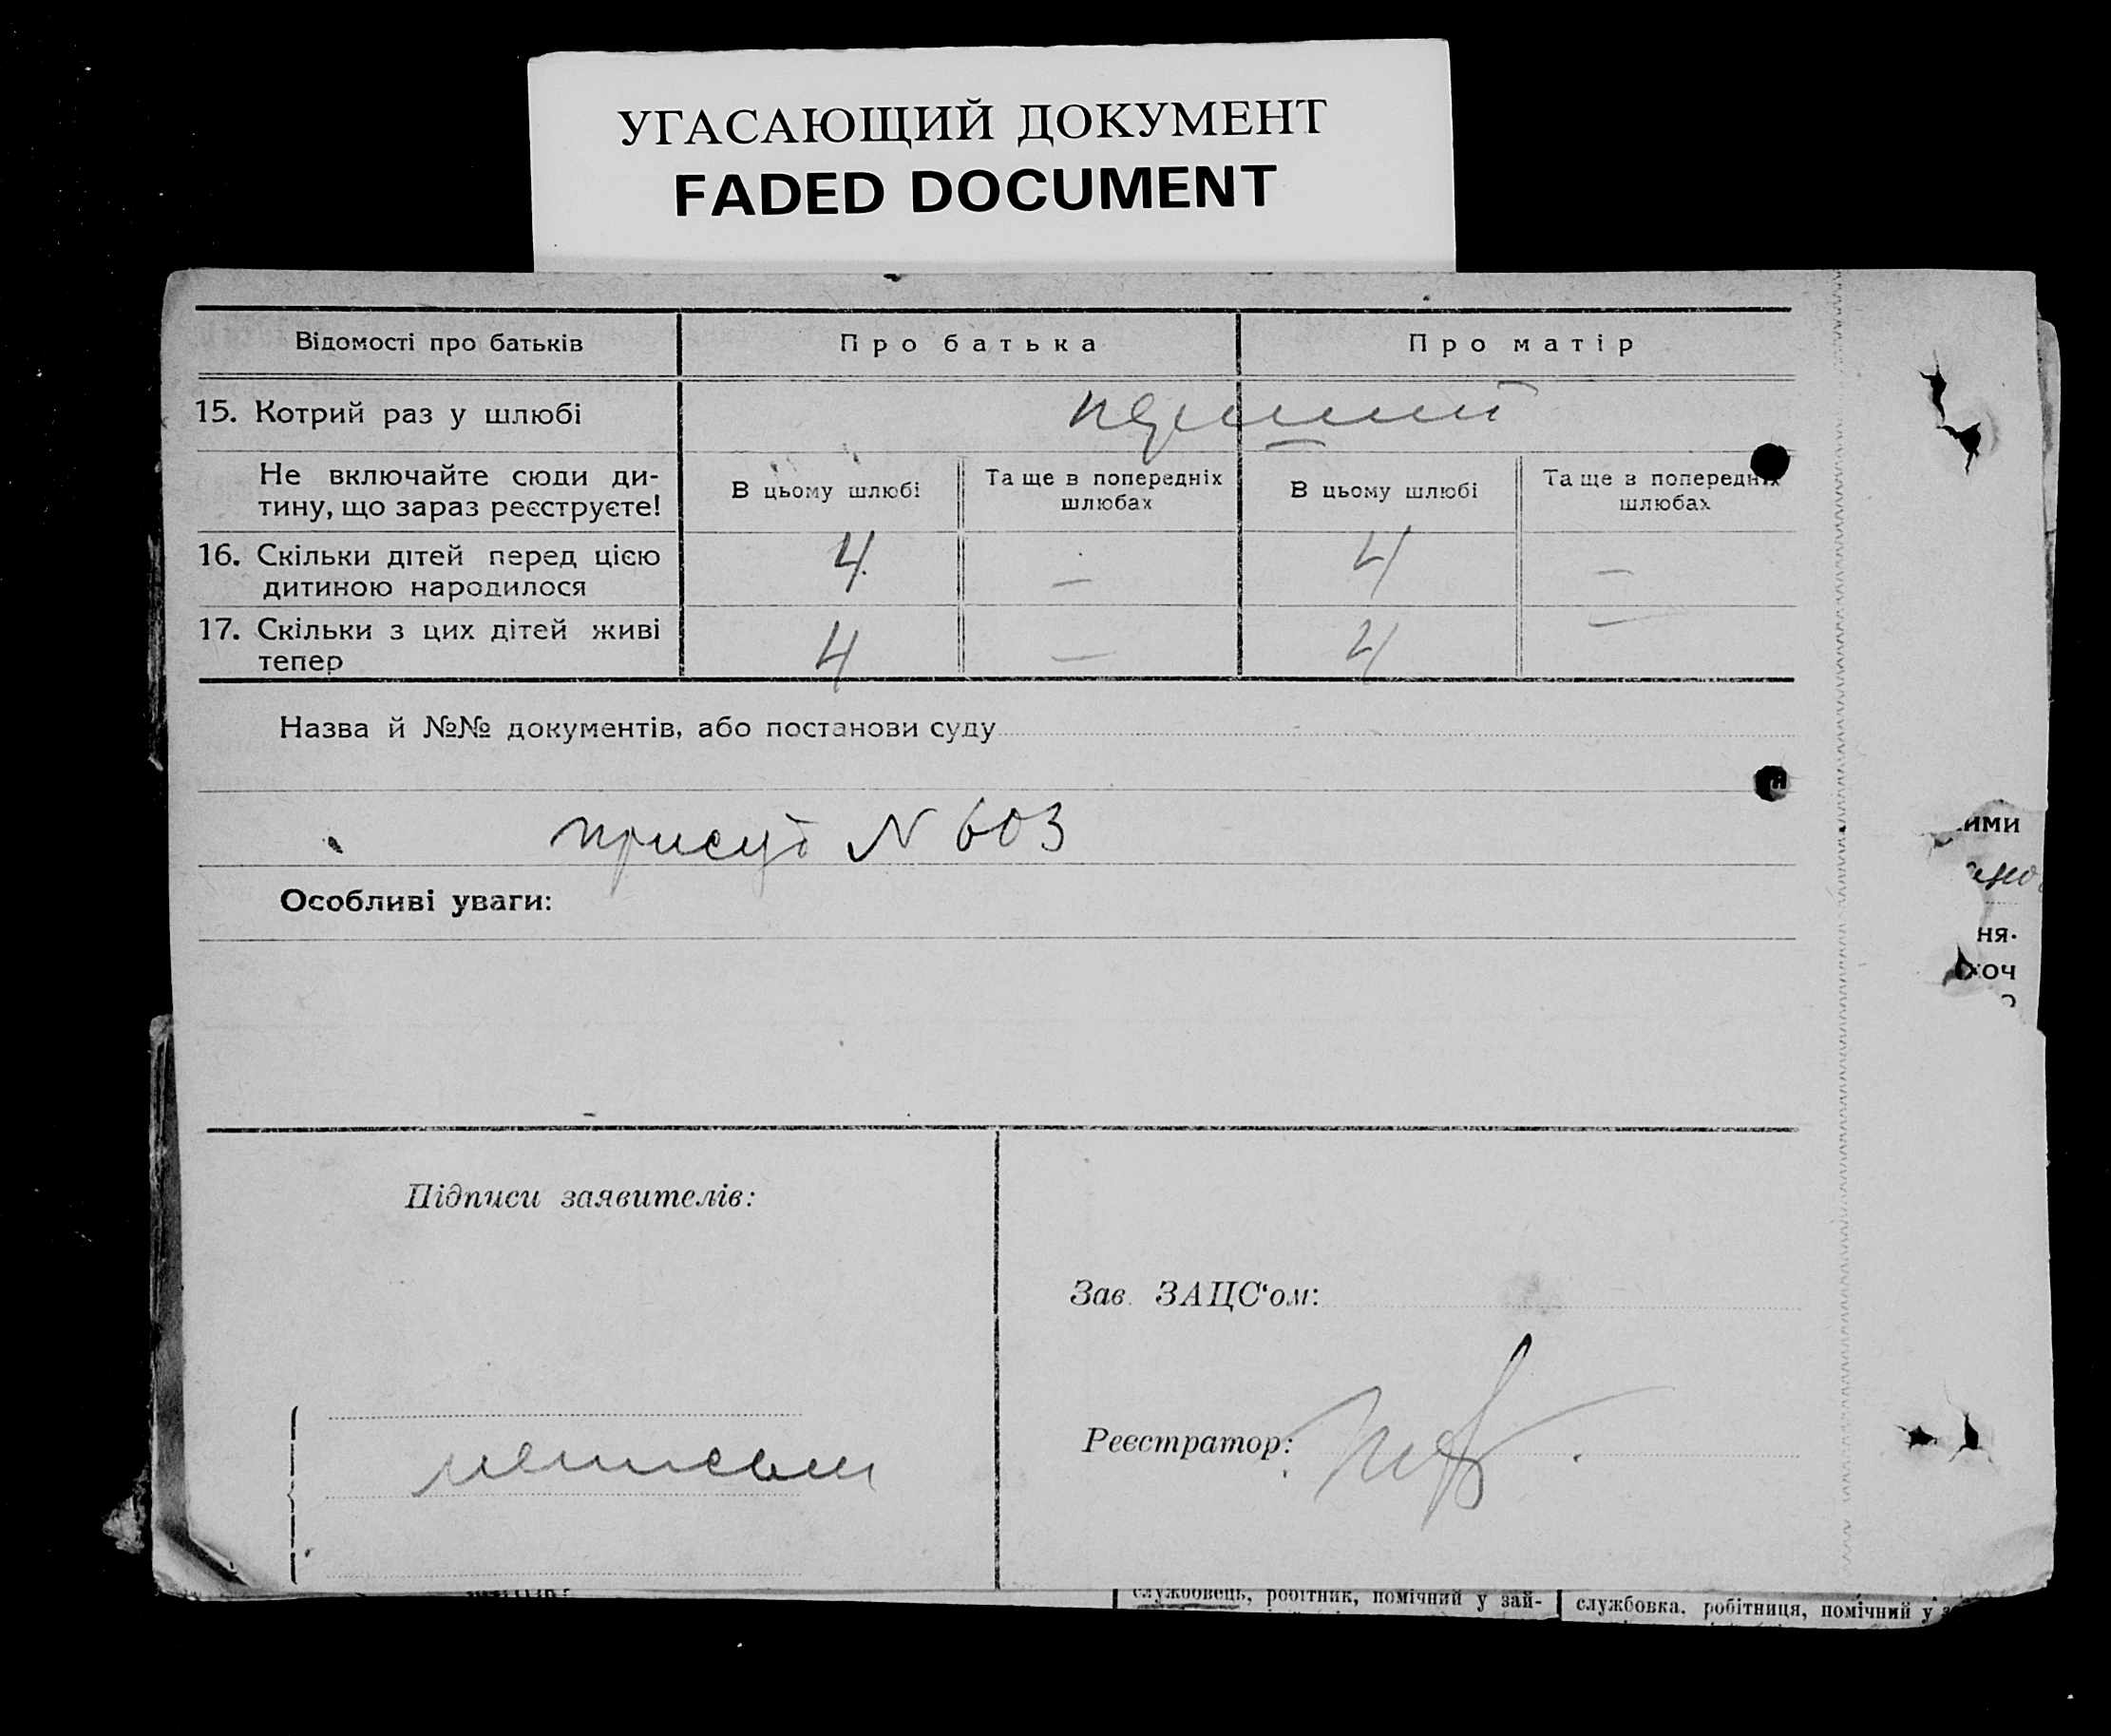 УГАСАЮЩИЙ ДОКУМЕНТ
FADED DOCUMENT
Відомості про батьків
Про батька
Про матір
15. Котрий раз у шлюбі
перший
Не включайте сюди ди-
тину, що зараз реєструєте!
В цьому шлюбі
Та ще в попередніх
шлюбах
В цьому шлюбі
Та ще в попередніх
шлюбах
16. Скільки дітей перед цією
дитиною народилося
4
—
4
—
17. Скільки з цих дітей живі
тепер
4
—
4
—
Назва й №№ документів, або постанови суду
присуд N 603
Особливі уваги:
Підписи заявителів:
Зав. ЗАЦС‘ом:
Реєстратор:
ими
ня.
хоч
службовець, робітник, помічний у зай-
службовка, робітниця, помічний у